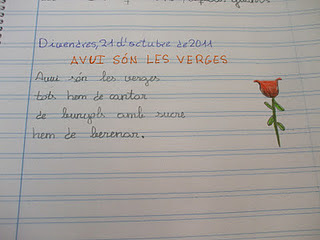 Divendres, 21 d'octubre de 2011
AVUI SÓN LES VERGES
Avui són les verges
tots hem de cantar
de bunyols amb sucre
hem de berenar.